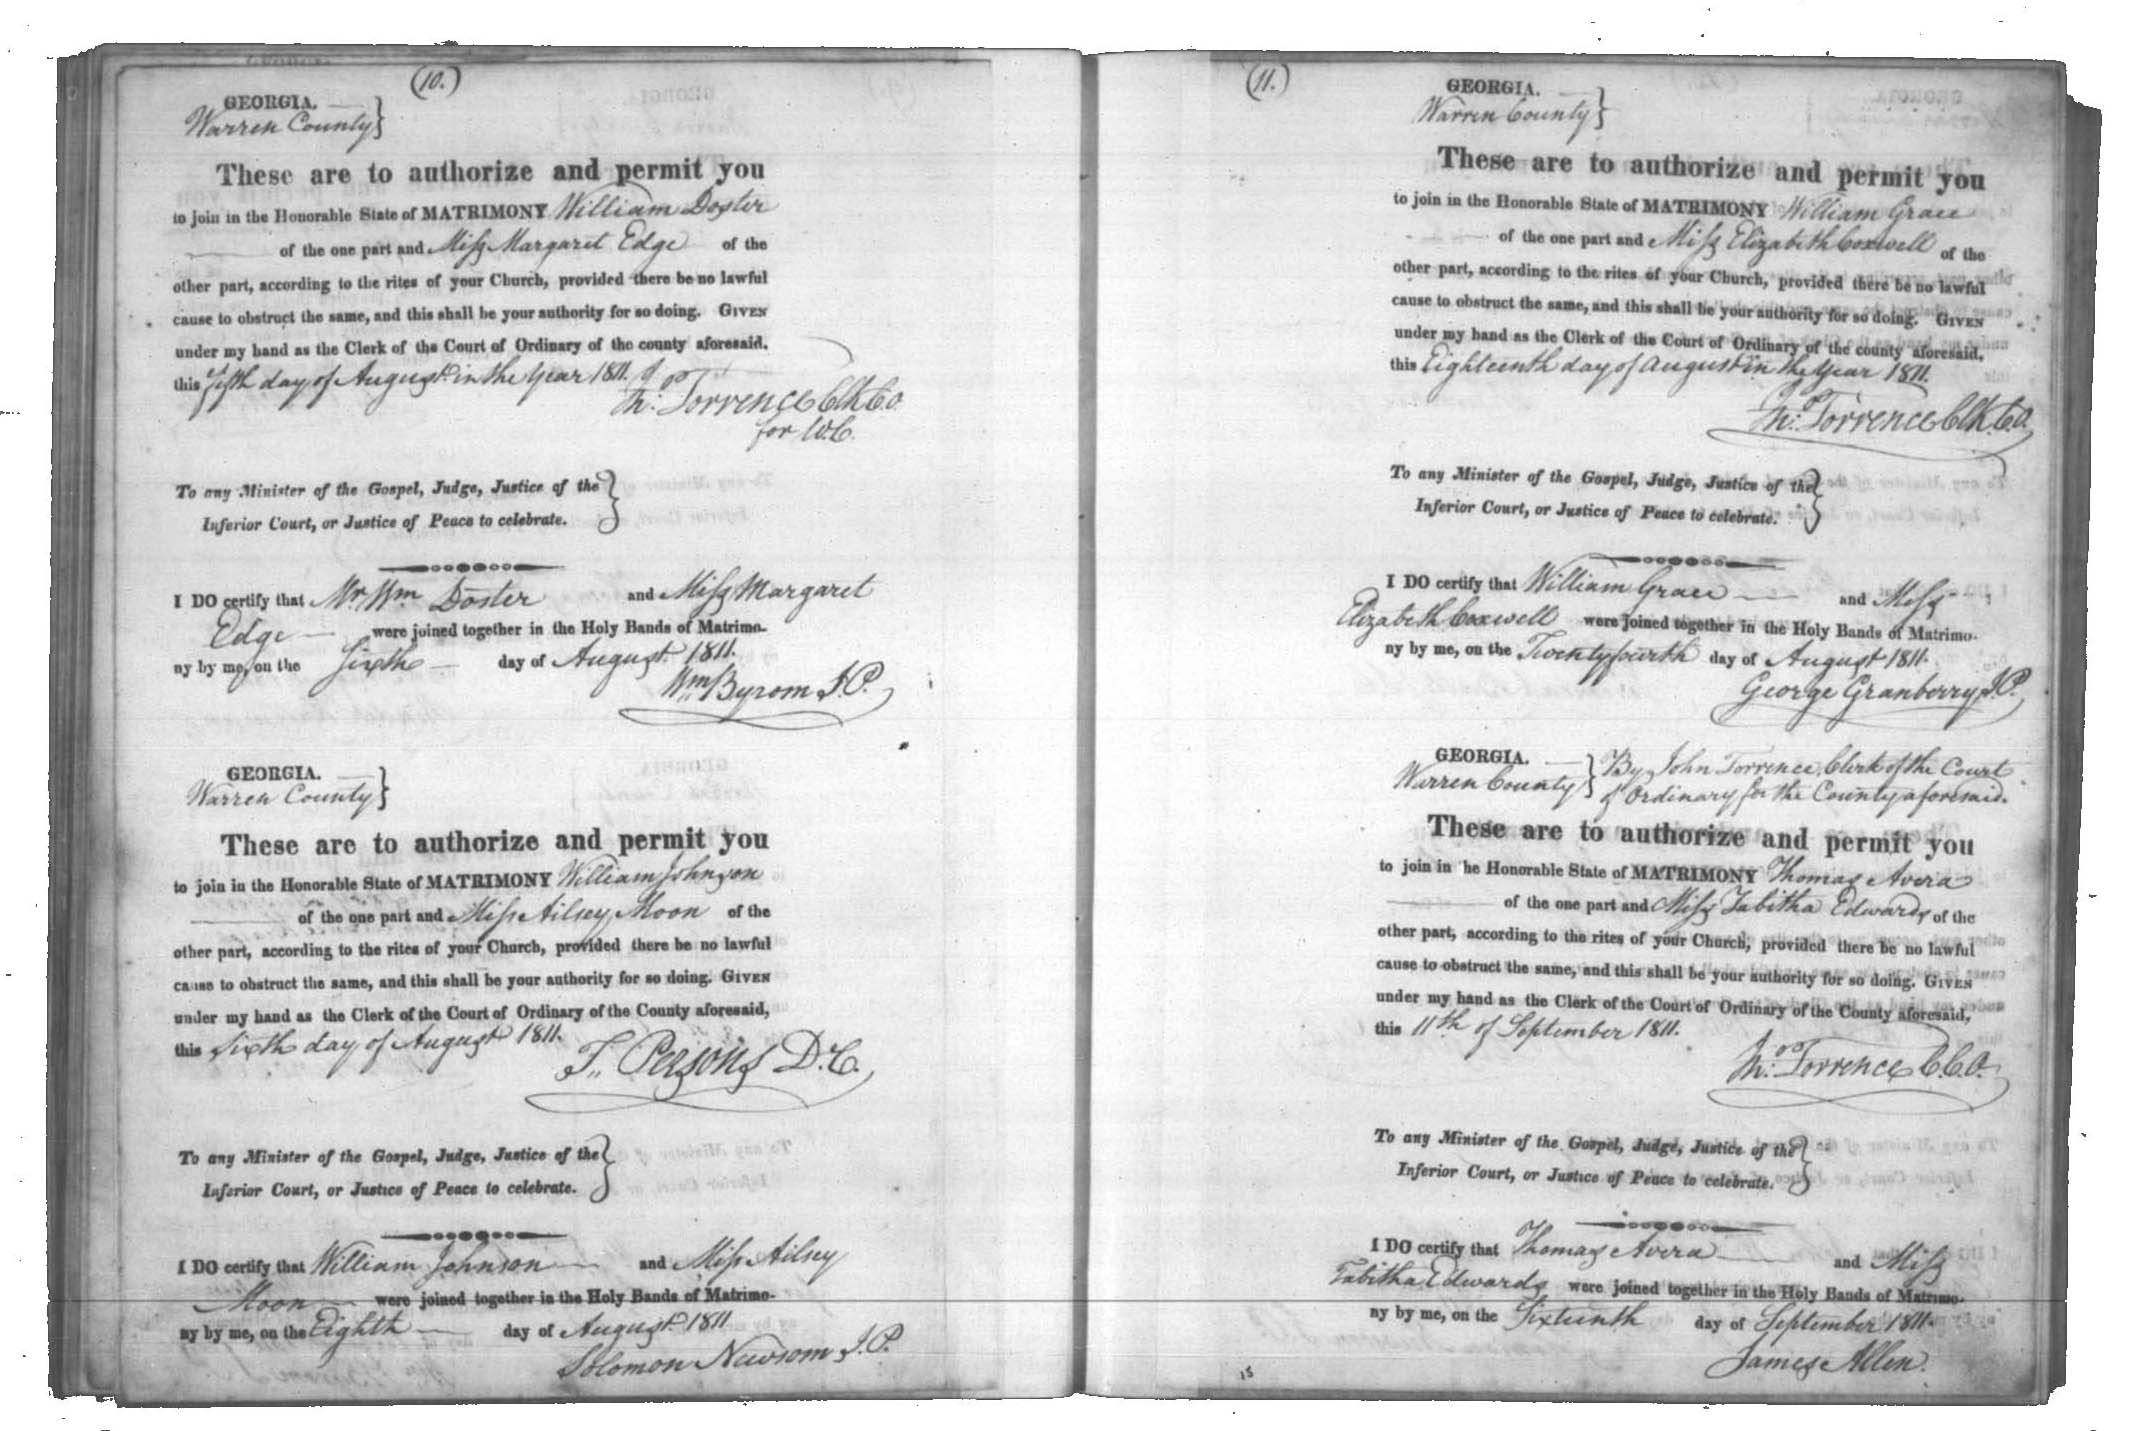 (10.)
GEORGIA.
Warren County
These are to authorize and permit you
to join in the Honorable State of MATRIMONY William Doster
of the one part and Miss Margaret Edge of the
other part, according to the rites of your Church, provided there be no lawful
cause to obstruct the same, and this shall be your authority for so doing. GIVEN
under my hand as the Clerk of the Court of Ordinary of the county aforesaid.
this fifth day of August in the Year 1811.
Jno: Torrence Clk C.O.
for W.C.
To any Minister of the Gospel, Judge, Justice of the
Inferior Court, or Justice of Peace to celebrate.
I DO certify that Mr Wm Doster and Miss Margaret
Edge were joined together in the Holy Bands of Matrimo-
ny by me, on the Sixth day of August 1811.
Wm Byrom J.P.
GEORGIA.
Warren County
These are to authorize and permit you
to join in the Honorable State of MATRIMONY William Johnson
of the one part and Miss Ailsey Moon of the
other part, according to the rites of your Church, provided there be no lawful
cause to obstruct the same, and this shall be your authority for so doing. GIVEN
under my hand as the Clerk of the Court of Ordinary of the County aforesaid,
this Sixth day of August 1811.
T. Persons D.C.
To any Minister of the Gospel, Judge, Justice of the
Inferior Court, or Justice of Peace to celebrate.
I DO certify that William Johnson and Miss Ailsey
Moon were joined together in the Holy Bands of Matrimo-
ny by me, on the Eighth day of August 1811
Solomon Newsom J.P.
(11.)
GEORGIA.
Warren County
These are to authorize and permit you
to join in the Honorable State of MATRIMONY William Grace
of the one part and Miss Elizabeth Coxwell of the
other part, according to the rites of your Church, provided there be no lawful
cause to obstruct the same, and this shall be your authority for so doing. GIVEN
under my hand as the Clerk of the Court of Ordinary of the county aforesaid,
this Eighteenth day of August in the Year 1811.
Jno: Torrence Clk. C.O.
To any Minister of the Gospel, Judge, Justice of the
Inferior Court, or Justice of Peace to celebrate.
I DO certify that William Grace and Miss
Elizabeth Coxwell were joined together in the Holy Bands of Matrimo-
ny by me, on the Twenty fourth day of August 1811.
George Granberry J.P.
GEORGIA. By John Torrence, Clerk of the Court
Warren County of Ordinary for the County aforesaid.
These are to authorize and permit you
to join in he Honorable State of MATRIMONY Thomas Avera
of the one part and Miss Tabitha Edwards of the
other part, according to the rites of your Church, provided there be no lawful
cause to obstruct the same, and this shall be your authority for so doing. GIVEN
under my hand as the Clerk of the Court of Ordinary of the County aforesaid,
this 11th of September 1811.
Jno: Torrence C.C.O.
To any Minister of the Gospel, Judge, Justice of the
Inferior Court, or Justice of Peace to celebrate.
I DO certify that Thomas Avera and Miss
Tabitha Edwards were joined together in the Holy Bands of Matrimo-
ny by me, on the Sixteenth day of September 1811.
James Allen.
15